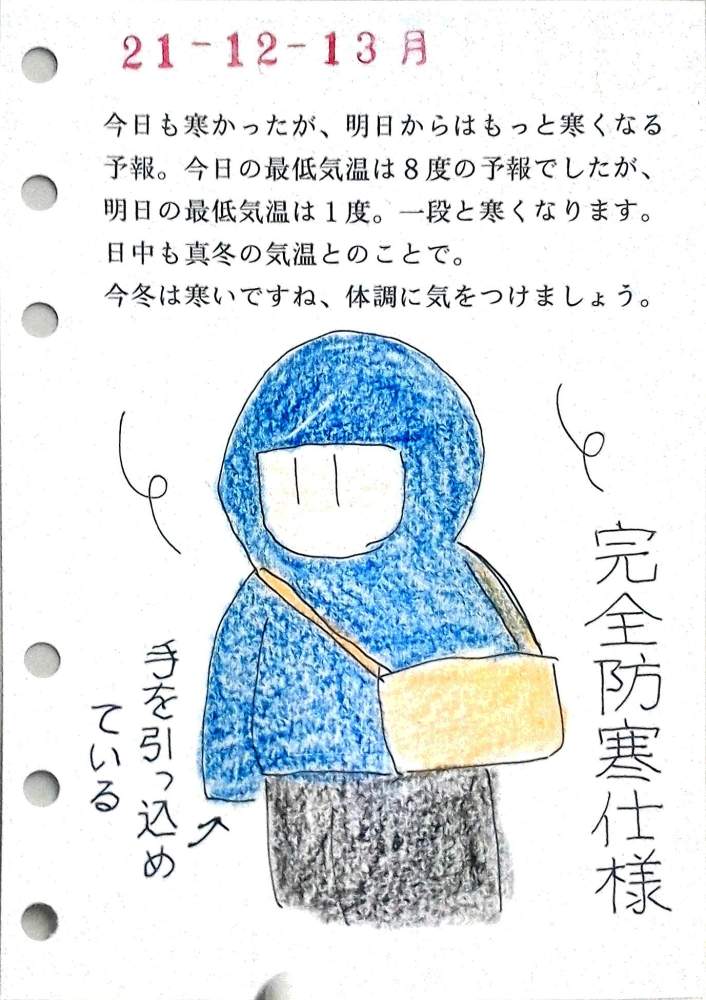 21-12-13月
今日も寒かったが、明日からはもっと寒くなる
予報。今日の最低気温は８度の予報でしたが、
明日の最低気温は１度。一段と寒くなります。
日中も真冬の気温とのことで。
今冬は寒いですね、体調に気をつけましょう。
完全防寒仕様
手を引っ込め
ている